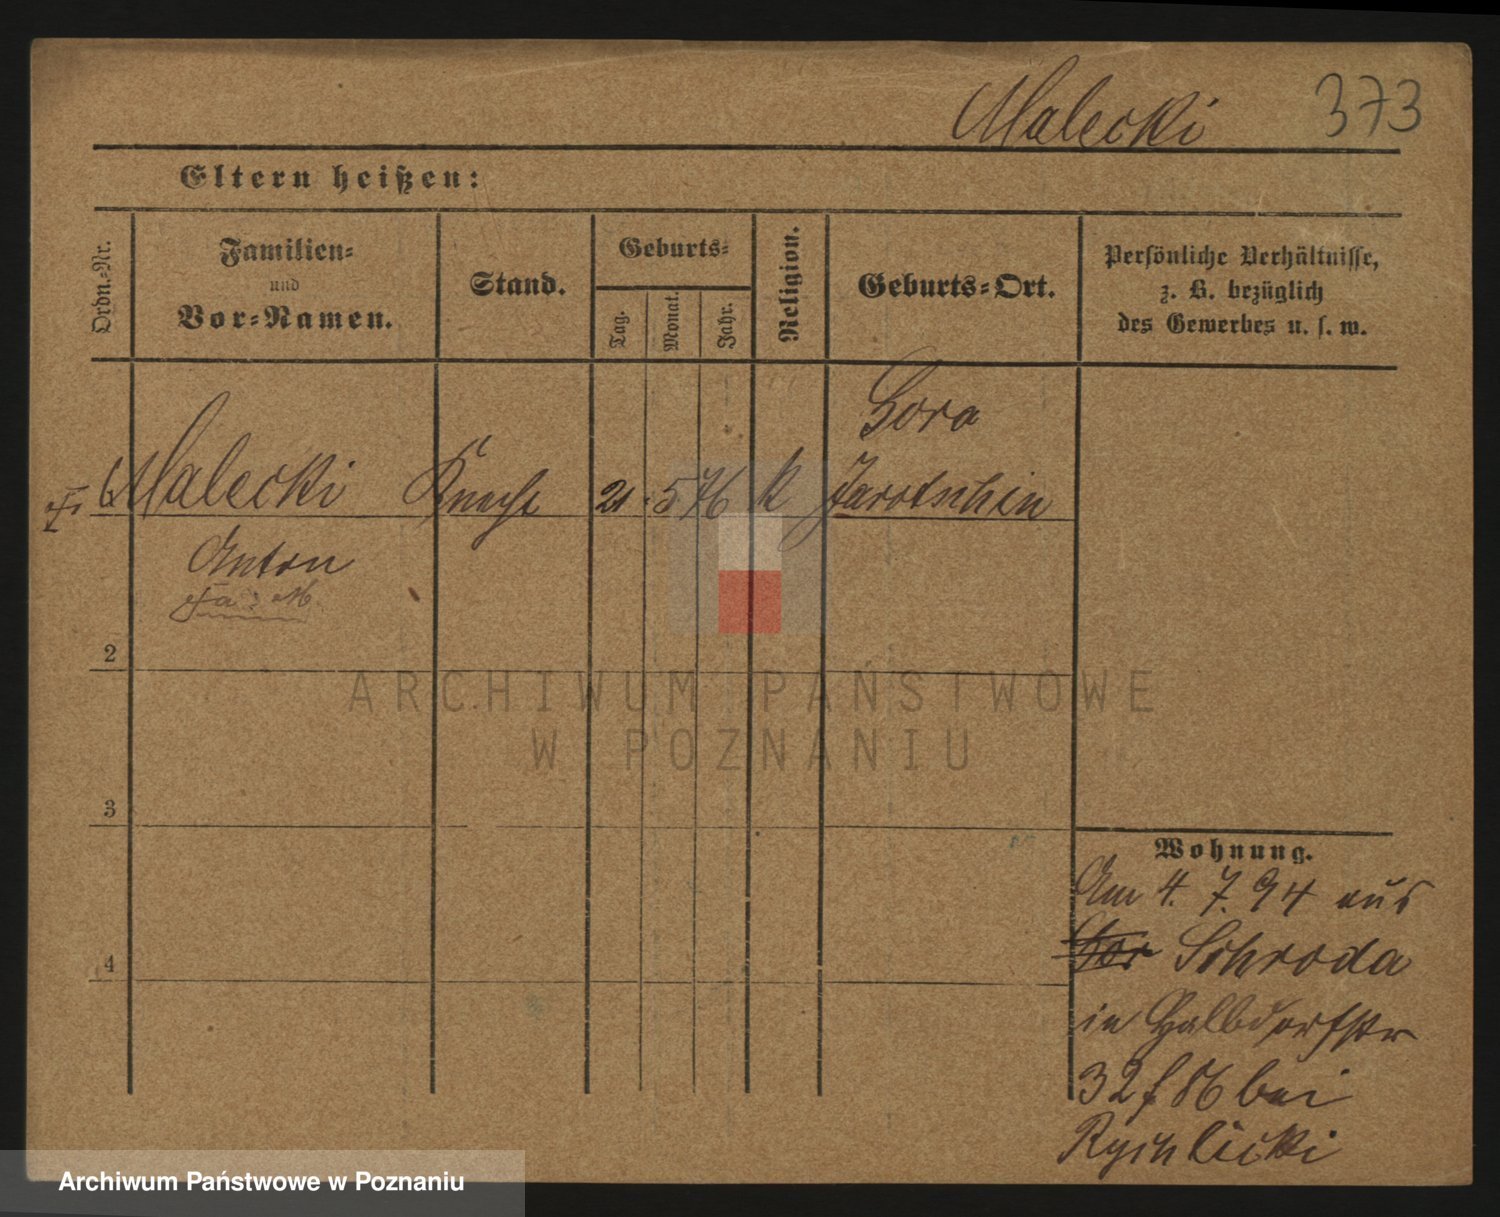 Malecki 373
Eltern heißen:
Ordn.-Nr.
Familien-
und
Vor-Namen.
Stand.
Geburts-
Tag.
Monat.
Jahr.
Religion.
Geburts-Ort.
Persönliche Verhältnisse,
z. B. bezüglich
des Gewerbes u. s. w.
Gora
Malecki Knecht 21. 5 76 k Jarotschin
Anton
2
3
4
Wohnung.
Am 4. 7. 94 aus
Schroda
in Halbdorfstr
32 bei
Rychlicki
ARCHIWUM PAŃSTWOWE
W POZNANIU
Archiwum Państwowe w Poznaniu